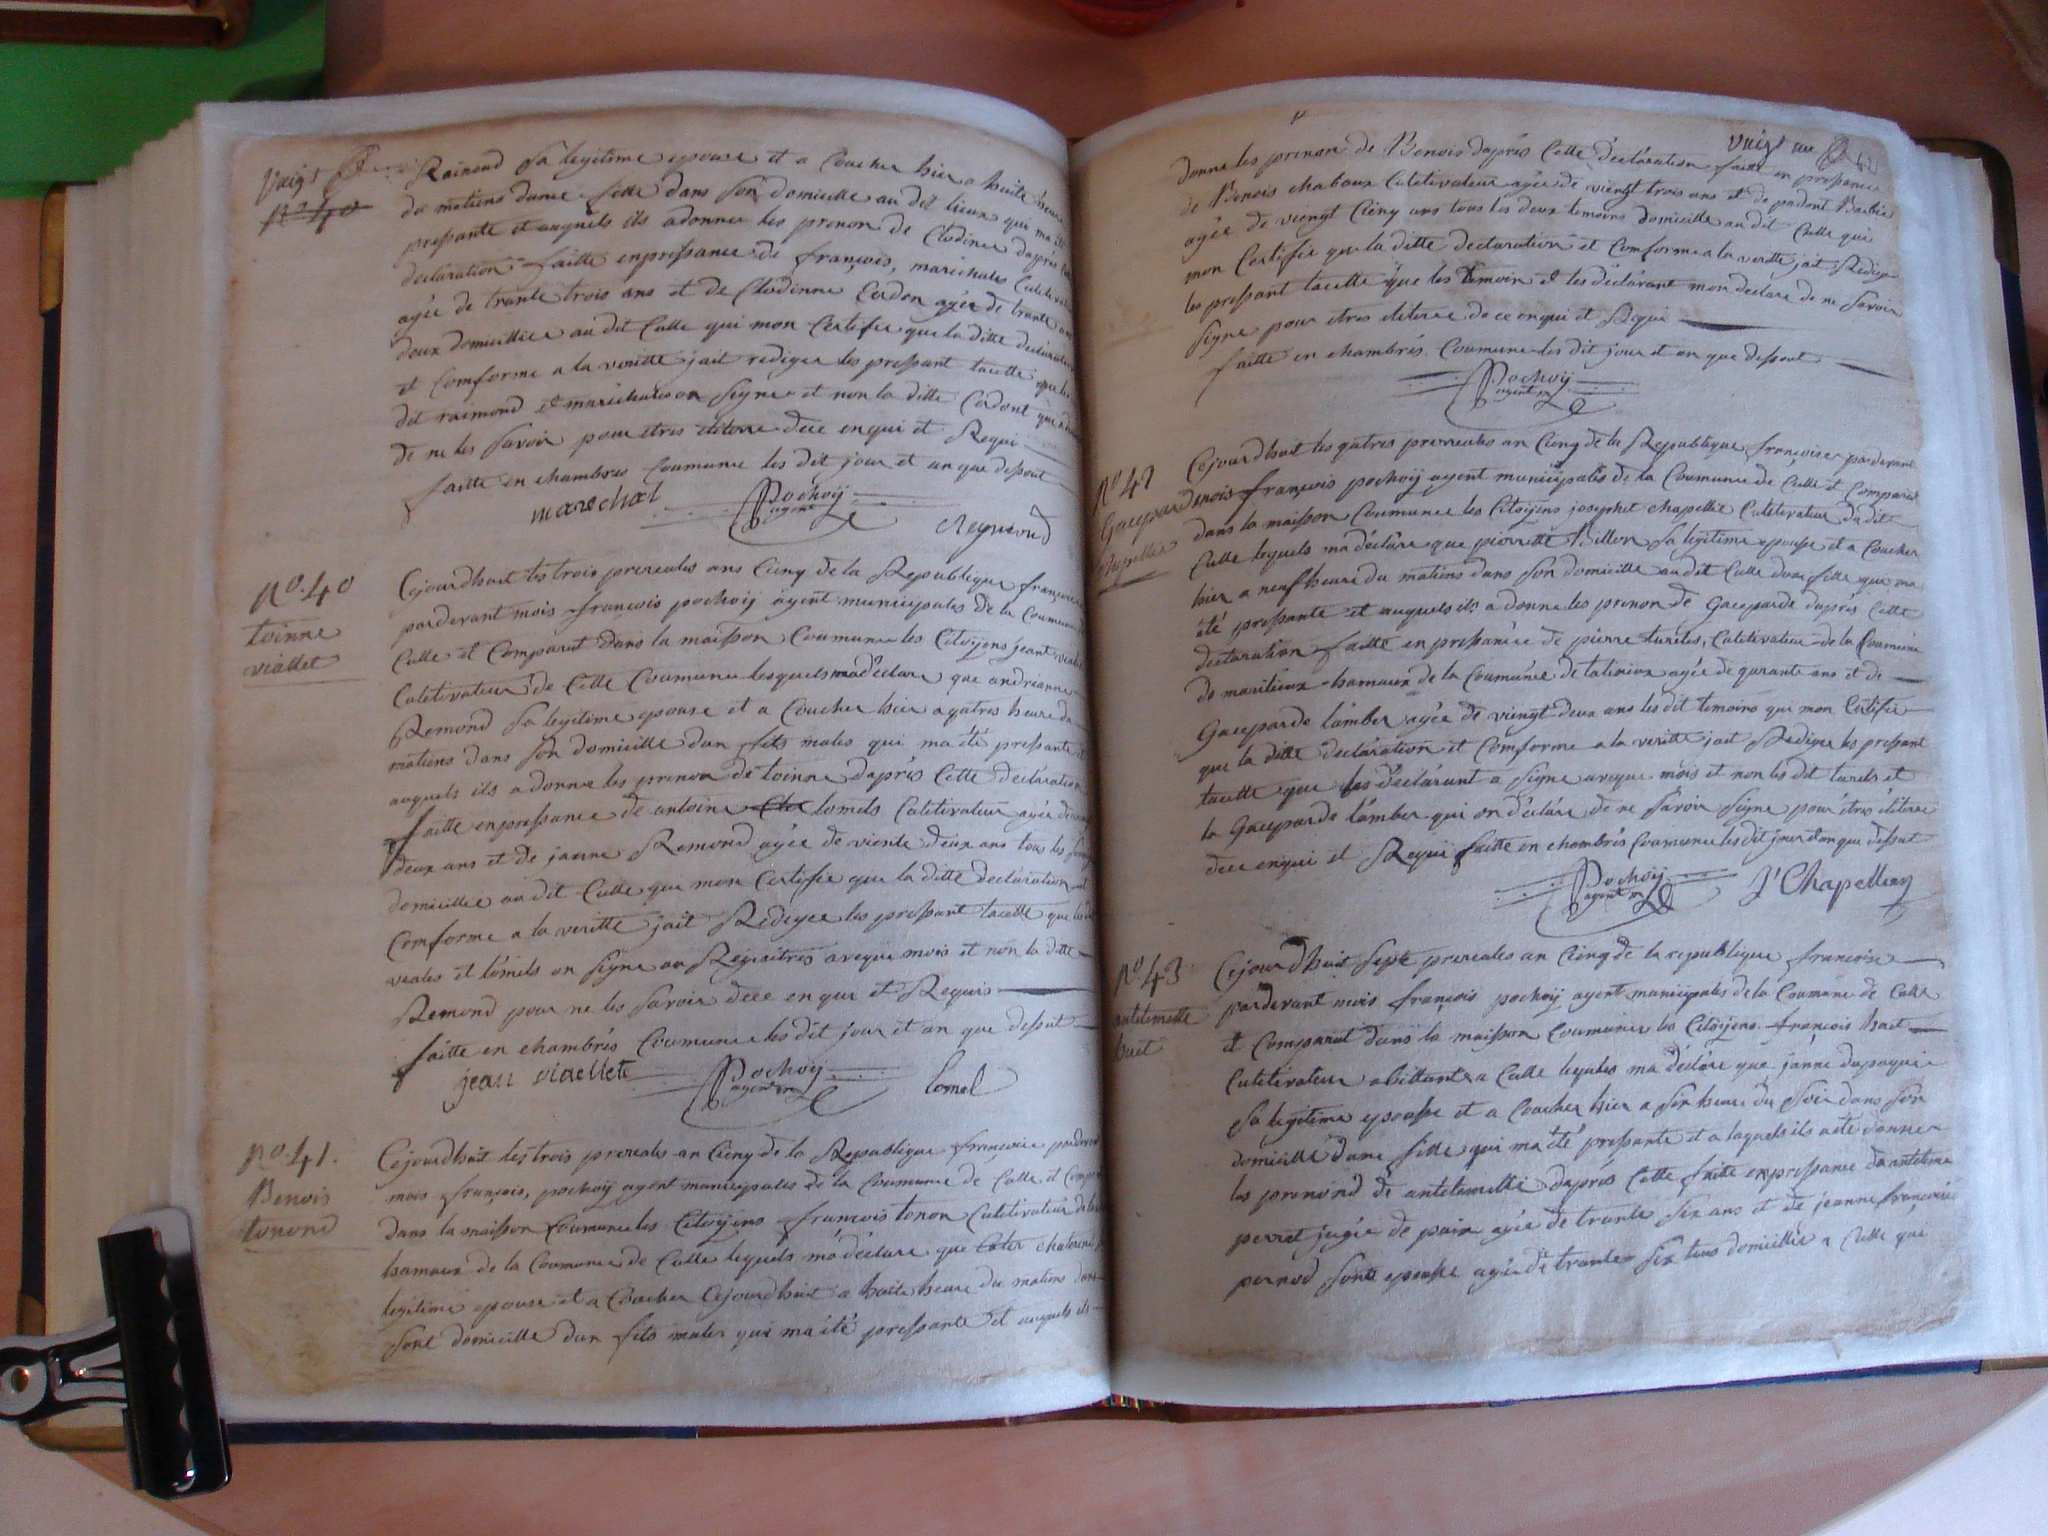 Vaigt
No 40
Raimond sa legitime epouse et a Coucher hier a huite heure
du matiens dunne fille dans son domicille au dit lieux qui ma été
pressante et auquels ils adonner les prenon de Clodinne daprés
declaration faitte enpressance de françois, marichales Culetivateur
agée de trante trois ans et de Clodinne Cadon agée de trante
deux domicillier au dit Culle qui mon Certifie que la ditte declaration
et Comforme a la veritte jait rediger les pressant tacette que les
dit raimond et marichales on signe et non la ditte Cadont qui a
de ne les savoir pour etres eliterre dece enqui et Requi
faitte en chambres Coumune les dit jour et an que dessut
marechal Pochoÿ agent Reymond
No. 40
toinne
viallet
Cejourdhuit les trois prereales ans Cienq de la Republique françoise
pardevant mois françois pochoÿ agent municipales de la Coumune de
Culle et Comparut dans la maisson Coumune les Citoÿens jeant
Culetivateur de Cette Coumune lesquels ma déclare que andrianne
Remond sa legitime epouse et a Coucher hier a quatres heure du
matiens dans son domicille dun fils males qui ma été pressante et
auquels ils a donner les prenon de toinne daprés Cette déclaration
faitte enpressance de antoine lomels Culetivateur agée de
deux ans et de janne Remond agée de viente deux ans tous les
domicillie au dit Culle que mon Certifie que la ditte declaration et
Comforme a la veritte jait Redigee les pressant tacette que les dit
veales et lomels on signe au Regisitres aveque mois et non la ditte
Remond pour ne les savoir dece en qui et Requis
faitte en chambrés Coumune les dit jour et an que dessut
jean viaellete Pochoÿ agent lomel
No. 41.
Benois
tonond
Cejourdhuit les trois prereales an Cienq de la Republique françoise pardevant
mois françois, pochoÿ agent municipales de la Coumune de Culle et Comparut
dans la maisson Coumune les Citoÿens françois tonon Culetivateur
hamaux de la Coumune de Culle lequels ma déclare que
legitime epouse et a Coucher Cejourdhuit a huite heure du matiens dans
sont domicille dun fils males qui ma été pressante et auquels ils
Vaigt une
donne les prenon de Benois daprés Cette déclaration faitte en pressance
de Benois chaboux Culetivateur agée de viengt trois ans et de
agée de viengt Cienq ans tous les deux temoins domicille au dit Culle qui
mon Certifie que la ditte declaration et Comforme a la veritte jait Redige
les pressant tacette que les temoin et les déclarant mon declare de ne savoir
signe pour etres eliterre de ce enqui et Requi
faitte en chambrés Coumune les dit jour et an que dessut
Pochoÿ agent
No 42
Gaceparde
chapellie
Cejourdhuit les quatres prereales an Cienq de la Republique françoise pardevant
mois françois pochoÿ agent municipales de la Coumune de Culle et Comparut
dans la maisson Coumune les Citoÿens josephet chapellit Culetivateur du dit
Culle lequels ma déclare que pierrette Billon sa legitime epouse et a Coucher
hier a neuf heure du matiens dans son domicille au dit Culle dune fille que ma
été pressante et auquels ils a donne les prenon de Gaceparde daprés Cette
declaration faitte en pressance de pierre tureles, Culetivateur de la Coumune
de maritieux hamaux de la Coumune de agée de qurante ans et de
Gaceparde lamber agée de viengt deux ans les dit temoins qui mon Certifie
que la ditte declaration et Comforme a la veritte jait Rediger les pressant
tacette que les déclarant a signe aveque mois et non les dit turels et
la Gaceparde lamber qui on déclare de ne savoir signe pour etres eliterre
dece enqui et Requi faitte en chambrés Coumune les dit jour et an que dessut
Pochoÿ agent J' Chapelleng
No 43
antelemette
huit
Cejourdhuit septe prereales an Cienq de la republique francoise
pardevant mois françois pochoÿ agent municipales de la Coumune de Culle
et Comparut dans la maisson Coumune les Citoÿens francois huit
Culetivateur abittant a Culle lequles ma déclare que janne dupaquie
sa legitime epousse et a Coucher hier a six heure du Soir dans son
domicille dune fille qui ma été pressante et a laquels ils a été donner
les prenond de antelemette daprés Cette faitte enpressance de antelme
perret jugée de paix agée de trante six ans et de jeanne françoise
pernod sonte epousse agée de trante six tous domicillie a Culle qui